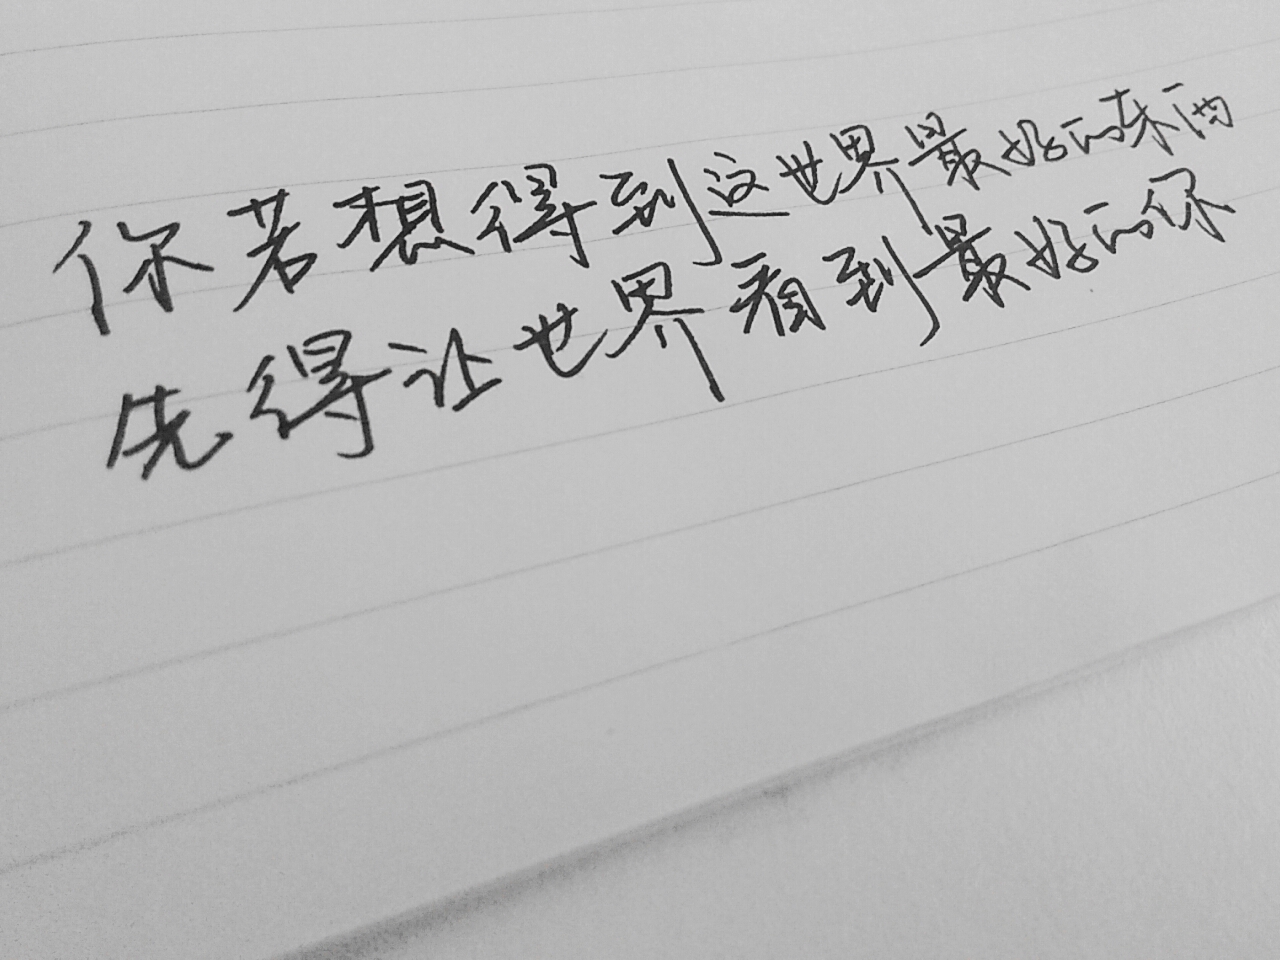 你若想得到这世界最好的东西
先得让世界看到最好的你